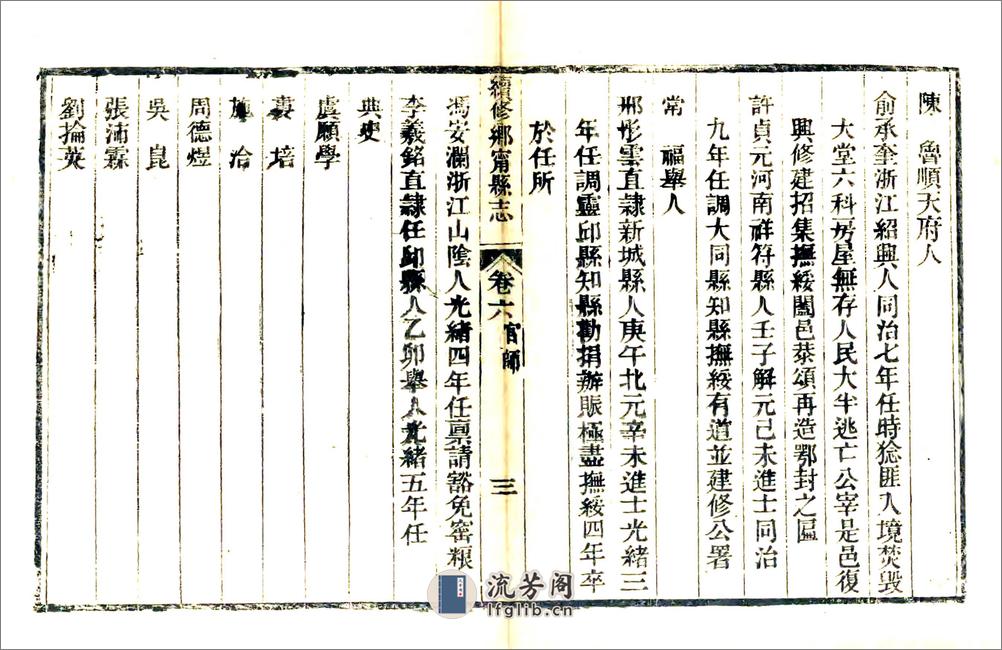 陳　魯順天府人
俞承奎浙江紹興人同治七年任時捻匪入境焚毀
大堂六科房屋無存人民大半逃亡公宰是邑復
興修建招集撫綏闔邑恭頌再造鄂封之匾
許貞元河南祥符縣人壬子解元己未進士同治
九年任調大同縣知縣撫綏有道並建修公署
常　福舉人
邢彤雲直隸新城縣人庚午北元辛未進士光緒三
年任調靈邱縣知縣勸捐辦賑極盡撫綏四年卒
於任所
續修鄉甯縣志　卷六官師　三
馮安瀾浙江山陰人光緒四年任禀請豁免窑粮
李羲銘直隸任邱縣人乙卯舉人光緒五年任
典史
虞願學
婁　培
施　治
周德煜
吳　崑
張沛霖
劉掄英
流芳阁
lfglib.cn